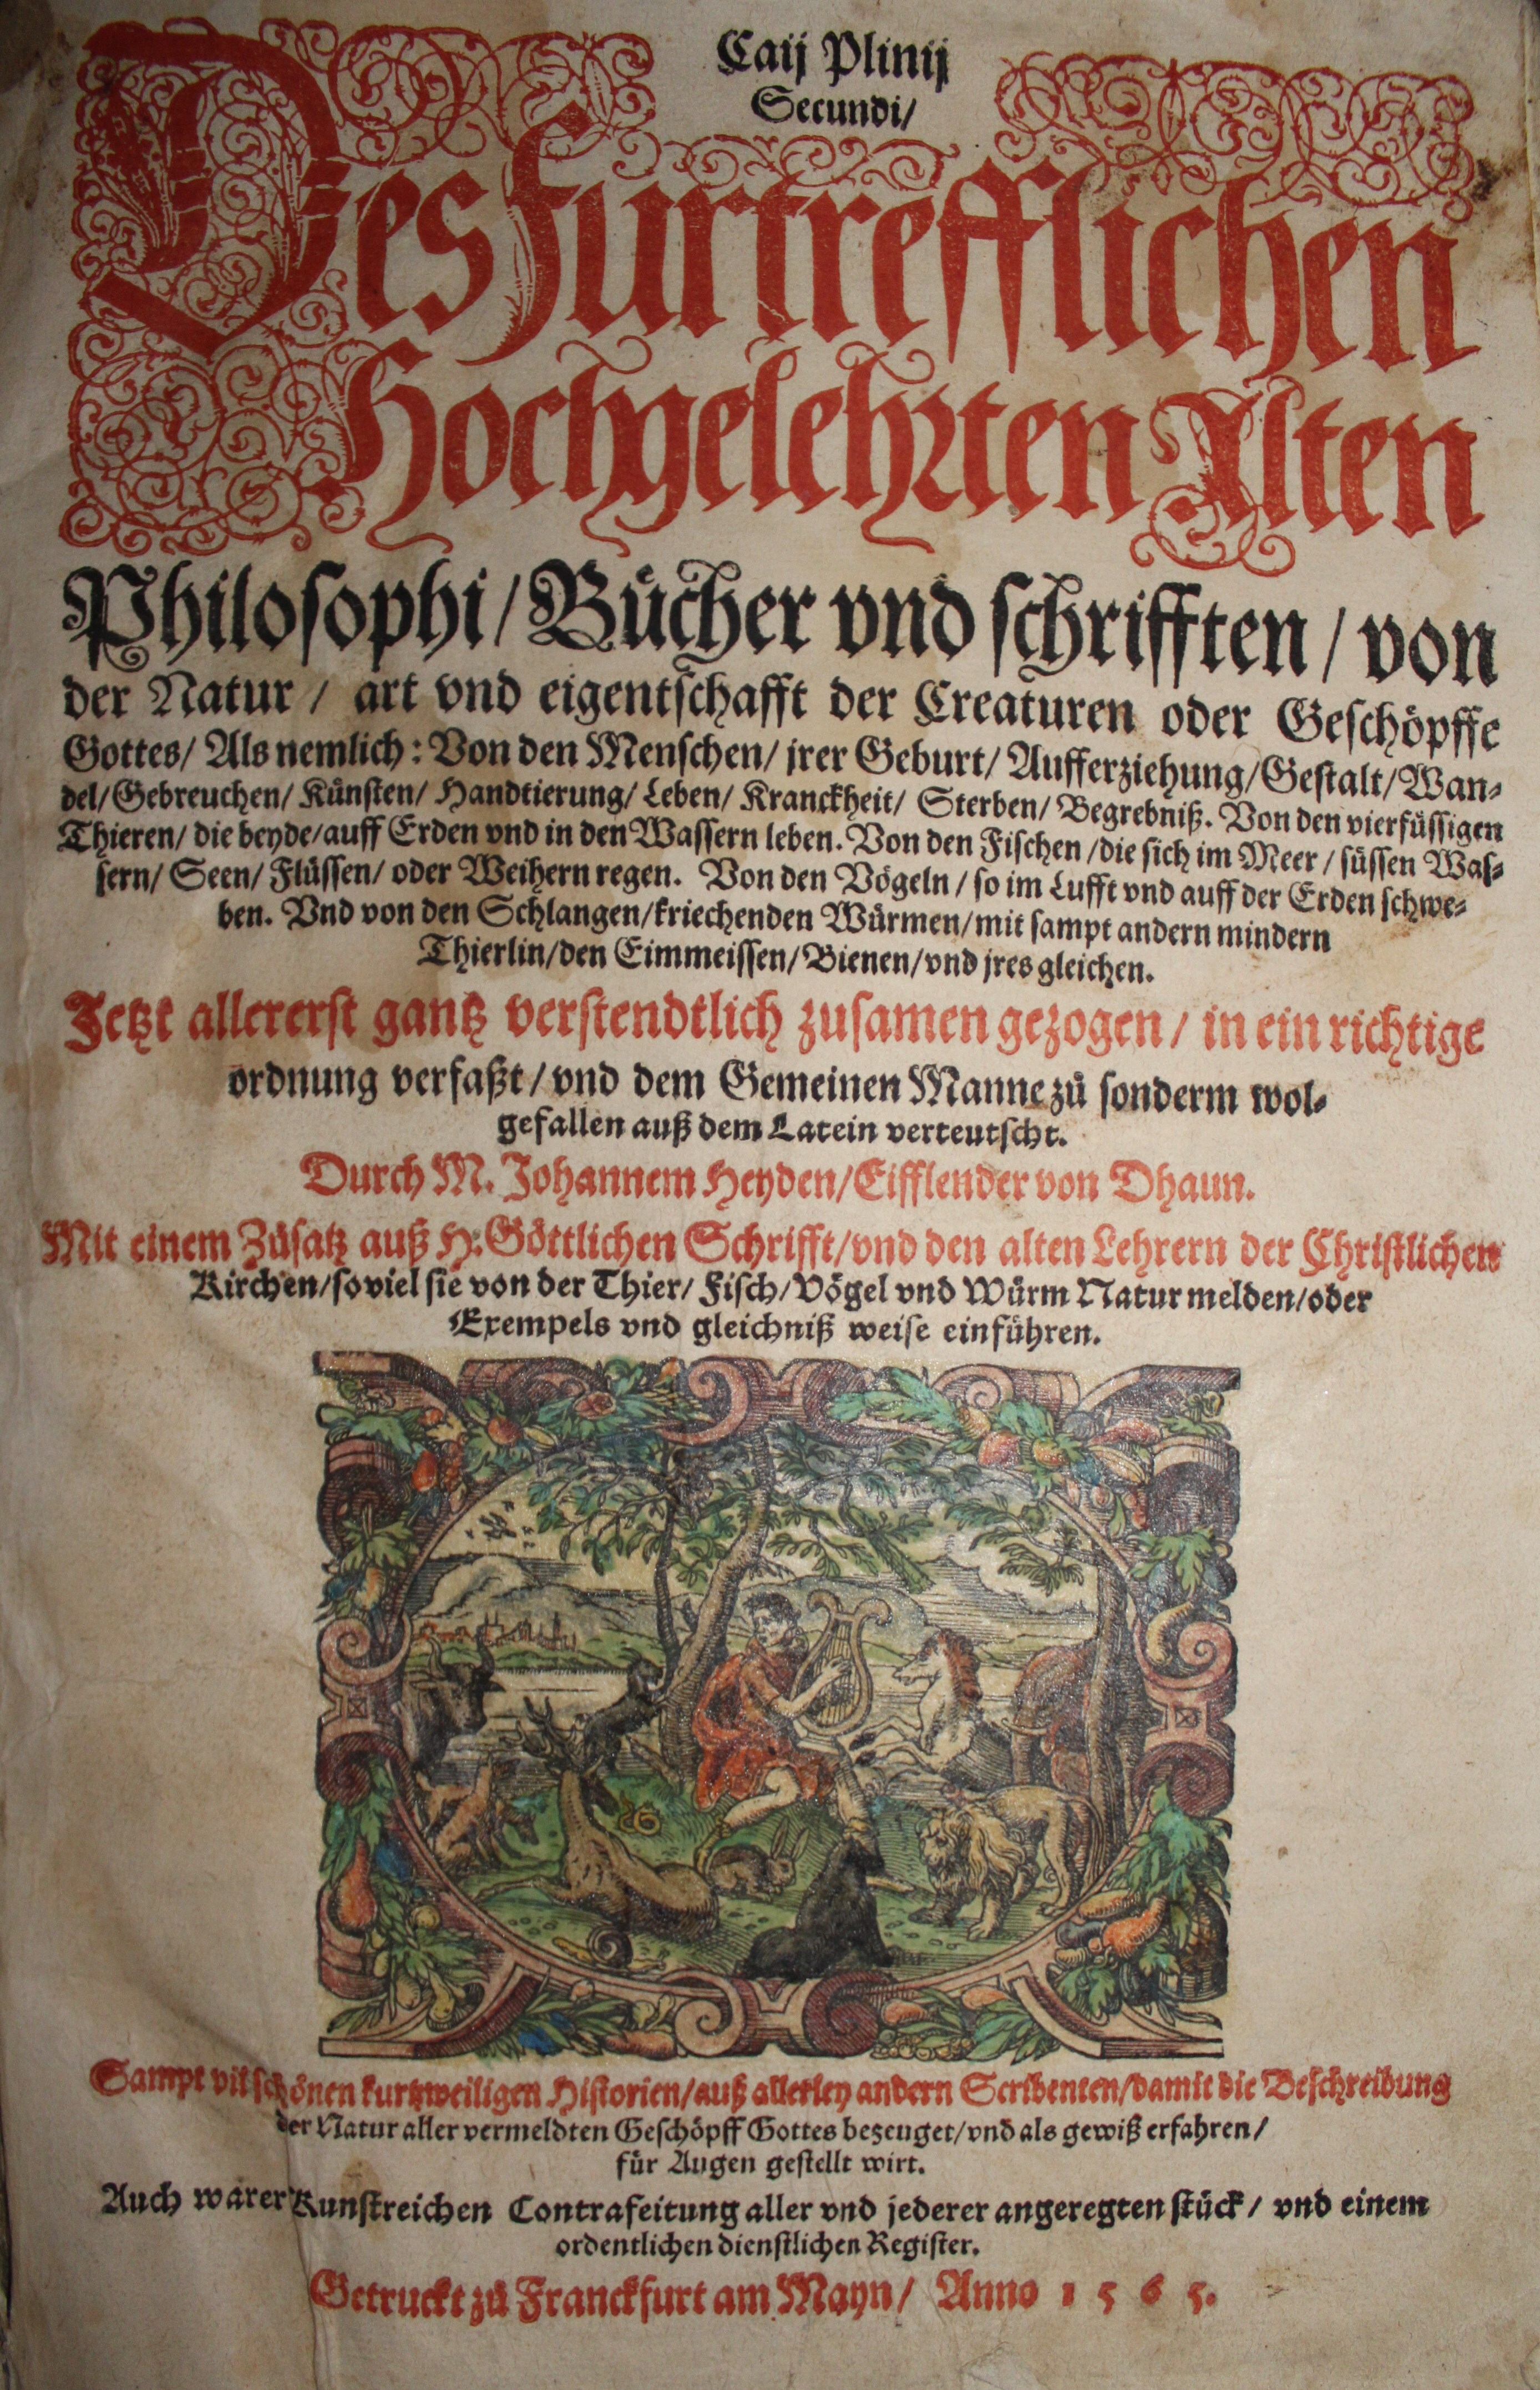 Caij Plinij
Secundi/
Des fürtrefflichen
Hochgelehrten Alten
Philosophi/ Bücher vnd schrifften/ von
der Natur/ art vnd eigentschafft der Creaturen oder Geschöpffe
Gottes/ Als nemlich: Von den Menschen/ jrer Geburt/ Aufferziehung/ Gestalt/ Wan-
del/ Gebreuchen/ Künsten/ Handtierung/ Leben/ Kranckheit/ Sterben/ Begrebniß. Von den vierfüssigen
Thieren/ die beyde/ auff Erden vnd in den Wassern leben. Von den Fischen/ die sich im Meer/ süssen Was-
sern/ Seen/ Flüssen/ oder Weihern regen. Von den Vögeln/ so im Lufft vnd auff der Erden schwe-
ben. Vnd von den Schlangen/ kriechenden Würmen/ mit sampt andern mindern
Thierlin/ den Eimmeissen/ Bienen/ vnd jres gleichen.
Jetzt allererst gantz verstendtlich zusamen gezogen/ in ein richtige
ordnung verfaßt/ vnd dem Gemeinen Manne zů sonderm wol-
gefallen auß dem Latein verteutscht.
Durch M. Johannem Heyden/ Eifflender von Dhaun.
Mit einem Zůsatz auß H. Göttlichen Schrifft/ vnd den alten Lehrern der Christlichen
Kirchen/ so viel sie von der Thier/ Fisch/ Vögel vnd Würm Natur melden/ oder
Exempels vnd gleichniß weise einführen.
Sampt vil schönen kurtzweiligen Historien/ auß allerley andern Scribenten/ damit die Beschreibung
der Natur aller vermeldten Geschöpff Gottes bezeuget/ vnd als gewiß erfahren/
für Augen gestellt wirt.
Auch warer Kunstreichen Contrafeitung aller vnd jederer angeregten stück/ vnd einem
ordentlichen dienstlichen Register.
Getruckt zů Franckfurt am Mayn/ Anno 1565.